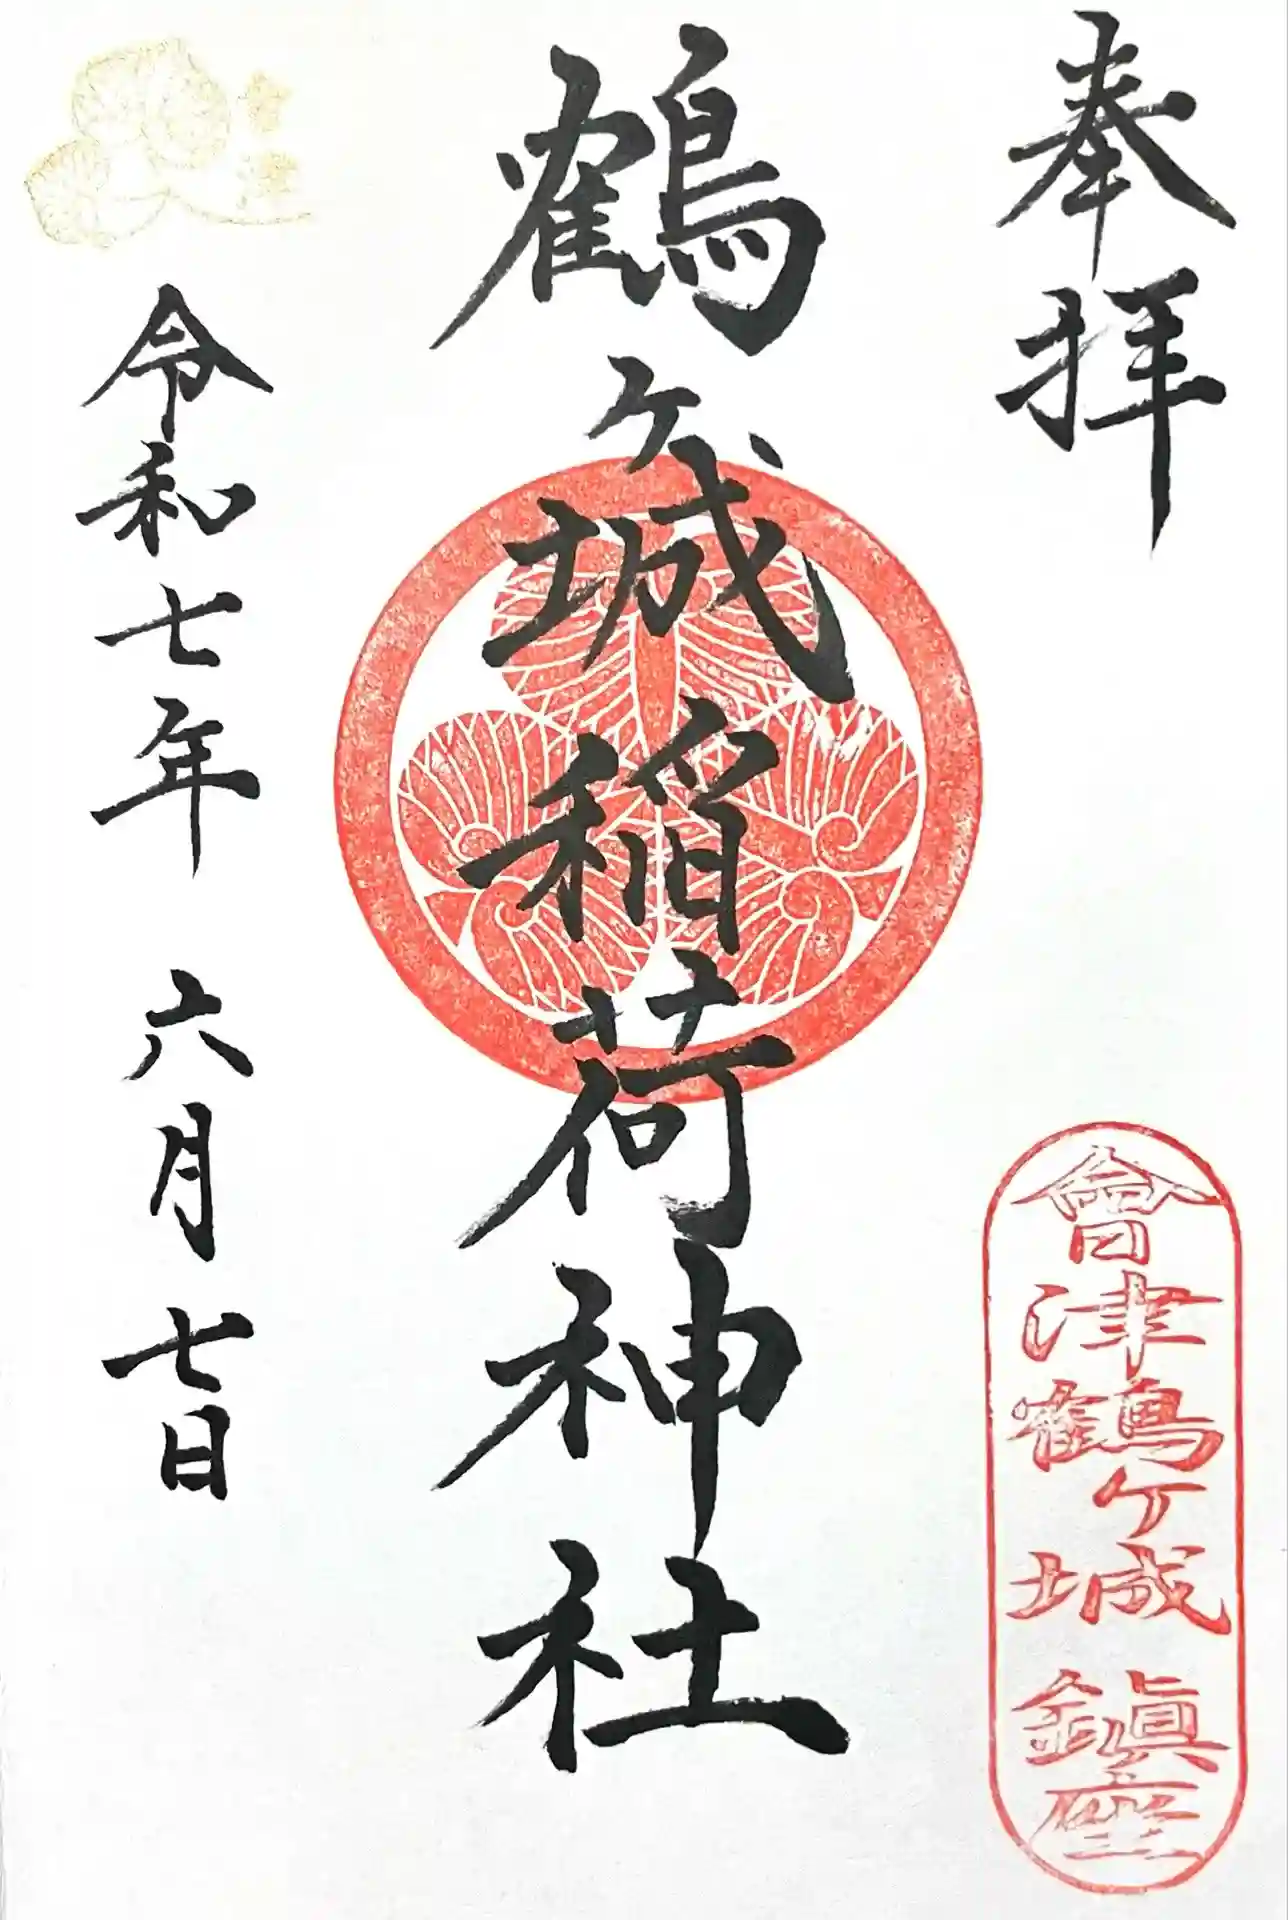 奉拝
會津鶴ヶ城鎮座
鶴ヶ城稲荷神社
令和七年 六月 七日